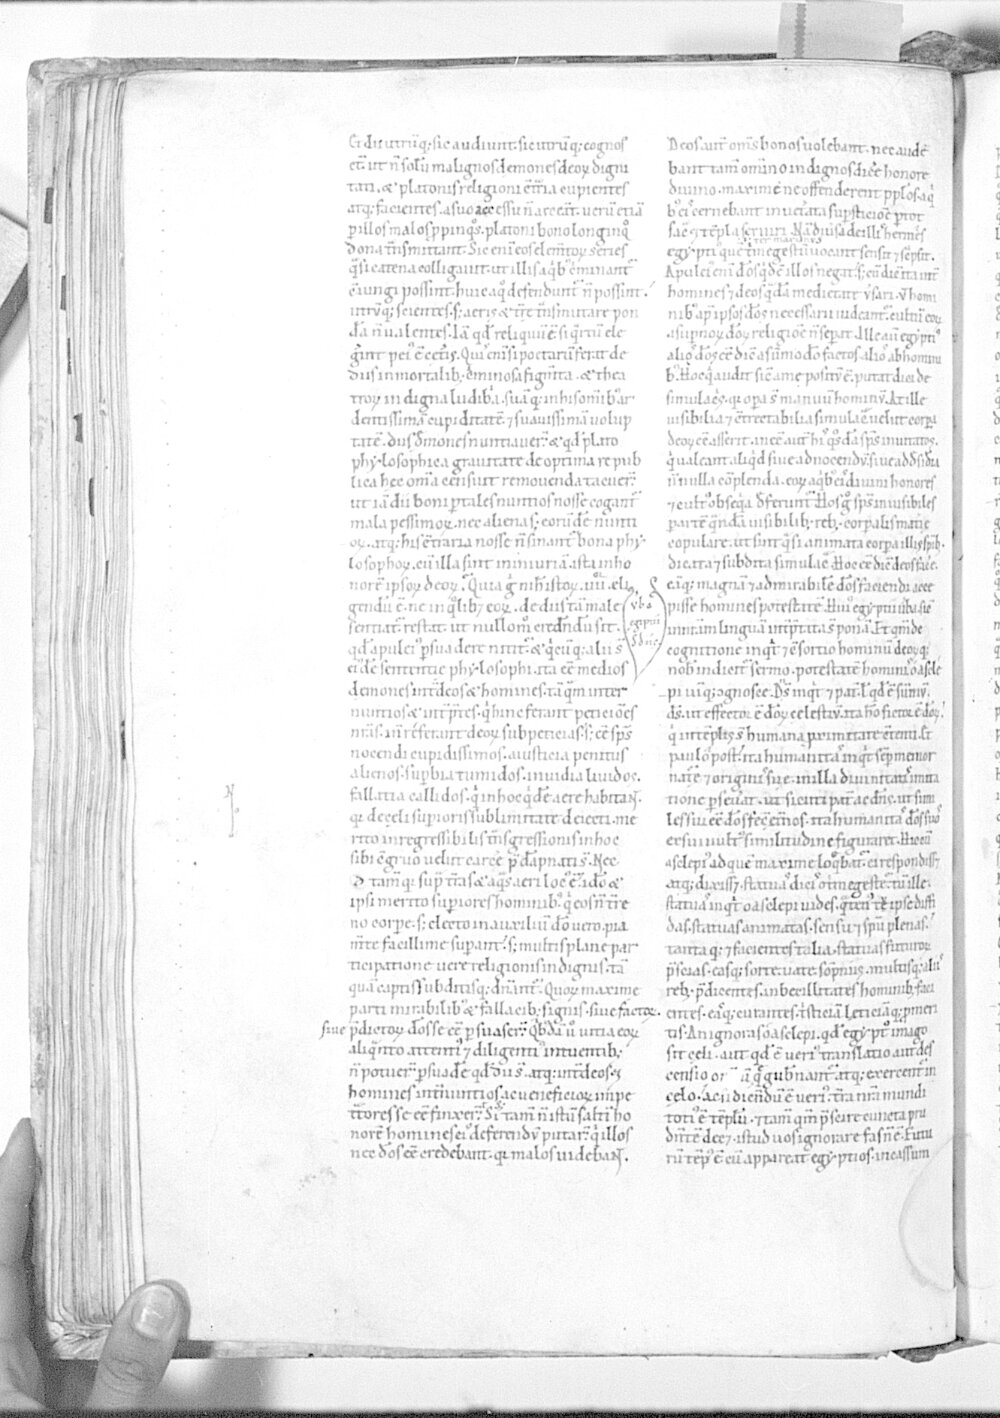 Et dii utrūq; sic audiunt. sic utrūq; cognos
ct̄. ut n̄ solū malignos demones deoꝝ digni
tati. & platonis religioni c̄tr̄ia cupientes
atq; facientes. a suo accessu n̄ arceāt. uerū etiā
p illos malos ꝓpinqͦs. platoni bono longinq̄
dona tn̄smittant. Sic eni eos elemtoꝝ series
q̄si catena colligauit. ut illis a qͥbꝰ c̄minant̄
c̄iungi possint. huic aqͦ defendunt̄ n̄ possint.
utrūq; scientes. s; aeris & tr̄e tn̄smutare pon
da n̄ ualentes. Iā qd̄ reliquū ē. si qͥrtū ele
dus inmortalibꝫ c̄minosa figm̄ta. & thea
troꝝ indigna ludibͥa. suāq; inhisom̄ibꝰar
dentissimā cupiditatē ⁊ suauissimā uolup
tatē. dus d̄mones nuntiauer̄. & qd̄ plato
phylosophica grauitate de optima re pub
lica hec om̄ia c̄ensuit remouenda tacuer̄.
ut iā dii boni ꝑ tales nuntios nosse cogant̄
mala pessimoꝝ. nec aliena s; eorūdē nunti
oꝝ. atq; his c̄traria nosse n̄ sinant̄ bona phy
losophoꝝ. cū illa sint ininiuriā. ista inho
norē ipsoꝝ deoꝝ. Quia g̊ nih̄ istoꝝ .iiii. eli
gendū ē. ne inqͦlibꝫ eoꝝ. de diis tā male
sentiat̄. restat. ut nullom̊ credn̄dū sit.
qd̄ apulei psuadere nitit̄. & qͥcūq; alii s̄
eiꝰdē sententie phylosophi. ita ēē medios
demones int̄ deos & homines. tāqm̄ inter
nuntios & int̄p̄tes. qͥ hinc ferant peticiōes
nr̄as. in̄ referant deoꝝ subpecias. s; ēē sp̄s
nocendi cupidissimos. a iusticia penitus
alienos. supbia tumidos. inuidia liuidos.
fallatia callidos. qͥ in hoc qͥdē aere habitan̄.
qꝛ de celi supioris sublimitate deiecti. me
rito inregressibilis tn̄sgressionis in hoc
sibi c̄gruo uelut carcē p̄dāpnati s̄. Nec
tam̄ qꝛ sup̄ tr̄as & aqͣs aeri locꝰ ē. idō &
ipsi merito supiores hominibꝰ. qͥ eos n̄ tr̄e
no corpe. s; electo in auxiliū d̄o uero. pia
m̄te facillime supant̄. s; multis plane par
ticipatione uere religionis indignis. tā
quā captis subditisq; dn̄ant̄. Quoꝝ maxime
parti mirabilibꝰ & fallacibꝫ signis. siue factoꝝ.
siue p̄dictoꝝ d̄osse ēē psuaser̄.
aliqn̄to attentiꝰ ⁊ diligentiꝰ intuentibꝫ.
n̄ potuer̄ psuadē qd̄ dii s̄. atq; int̄ deos ⁊
homines int̄nuntios ac ueneficioꝝ impe
tr̄oresse ēē finxer̄. Si tam̄ n̄ istū saltī ho
norē homines eiꝰ deferendū putar̄. qͥ illos
nec d̄os ēē credebant. qꝛ malos uideban̄.
ubͥ
egiptii
s̄
Deos aut̄ om̄is bonos uolebant. nec audē
bant tam̄ om̄ino indignos dicē honore
diuino. maxime ne offenderent pplos. aqͥ
bꝰ ei cernebant inuetata supsticiōe ꝓt
sac̄ ⁊ tēpla seruiri. Nā diūsa de illi hermes
egyptiꝰ quē tm̄egestū uocant sensit ⁊ sc̄psit.
Apulei eni d̄os qͥdē illos negat. s; cū dicit a int̄
homines ⁊ deos qͣdā medietate ūsari. ūt homi
nibꝰ ap ipsos d̄os necessarii uideant̄. cultū eoꝝ
a supnoꝝ d̄oꝝ religiōe n̄ separat. Ille aū egyptiꝰ
alioͦ d̄os ēē dic̄ a sūmo d̄o factos. alioͦ ab homini
bꝰ. Hoc qͥ audit sic a me positū ē. putat dici de
simulac̄s. qꝛ opa s̄ manuū hominū. At ille
uisibilia ⁊ c̄trectabilia simulac̄ uelut corpa
deoꝝ ēē asserit. inēē aut̄ hiꝰ qͦsdā sp̄s inuitatos.
qͥ ualeant aliqd̄ siue ad nocendū. siue ad d̄sidia
n̄nulla c̄plenda. eoꝝ a qͥbꝰ ei diuini honores
⁊ cultꝰ obseqͥa d̄ferunt̄. Hos g̊ sp̄s inuisibiles
partē qn̄dā uisibilibꝫ rebꝫ. corpalis matie
copulare. ut sint qͣsi animata corpa illis sp̄ibꝫ
dicata ⁊ subdita simulac̄. Hoc ēē dic̄ deos fac̄e.
eāq; magnā ⁊ admirabilē d̄os faciendi acce
pisse homines potestatē. Huiꝰ egyptii ūba sic
cognitione inqͥt ⁊ c̄sortio hominū deoꝝq;
nob̄ indicit̄ sermo. potestatē hominiͦ o ascle
pi uiq; ɔgnosce. Dn̄s inqͥt ⁊ pat̄. ł qd̄ ē sūmū.
ds̄. ut effector ē d̄oꝝ celestiū. ita hō fictor ē d̄oꝝ.
qͥ in tēplis s̄ humana pximitate c̄tenti. Et
paulopost̄. ita humanitā inqͥt sēp memor
nature ⁊ originiꝰ sue. in illa diuinitatiꝰ imita
tione pseuat. ut sicuti pat̄ ac dn̄s. ut simi
les siui ēē d̄os fec̄ et̄nos. ita humanitā d̄os suoͦ
ex sui uultꝰ similitudine figuraret. Hic cū
asclepiꝰ adquē maxime loqͥbat̄. ei respondiss&
atq; dixiss&. statuā dicͥ o trimegeste: tū ille.
statuā inqͥt o asclepi uides. qͣtenꝰ tē ipse diffi
das. statuas animatas. sensu ⁊ spū plenas.
tantaq; ⁊ facientes talia. statuas futuroꝝ
p̄scias. easq; sorte. uate. somniis. multisq; aliiͦ
rebꝫ. p̄dicentes. inbecillitates hominibꝫ faci
entes. eāq; curantes. tsticiā leticiāq; p meri
tis. An ignoras o asclepi. qd̄ egyptꝰ imago
sit celi. aut qd̄ ē ueriꝰ translatio aut des
censio oīum q̄ gubnant̄ atq; exercent̄ in
celo. ac si dicendū ē ueriꝰ. tr̄a nr̄a mundi
totiꝰ ē tēplū. ⁊ tam̄ qm̄ p̄scire cuncta pru
dēntē decꝫ. istud uos ignorare fas n̄ ē. Futu
rū tēpꝰ ē cū appareat egyptios. incassum